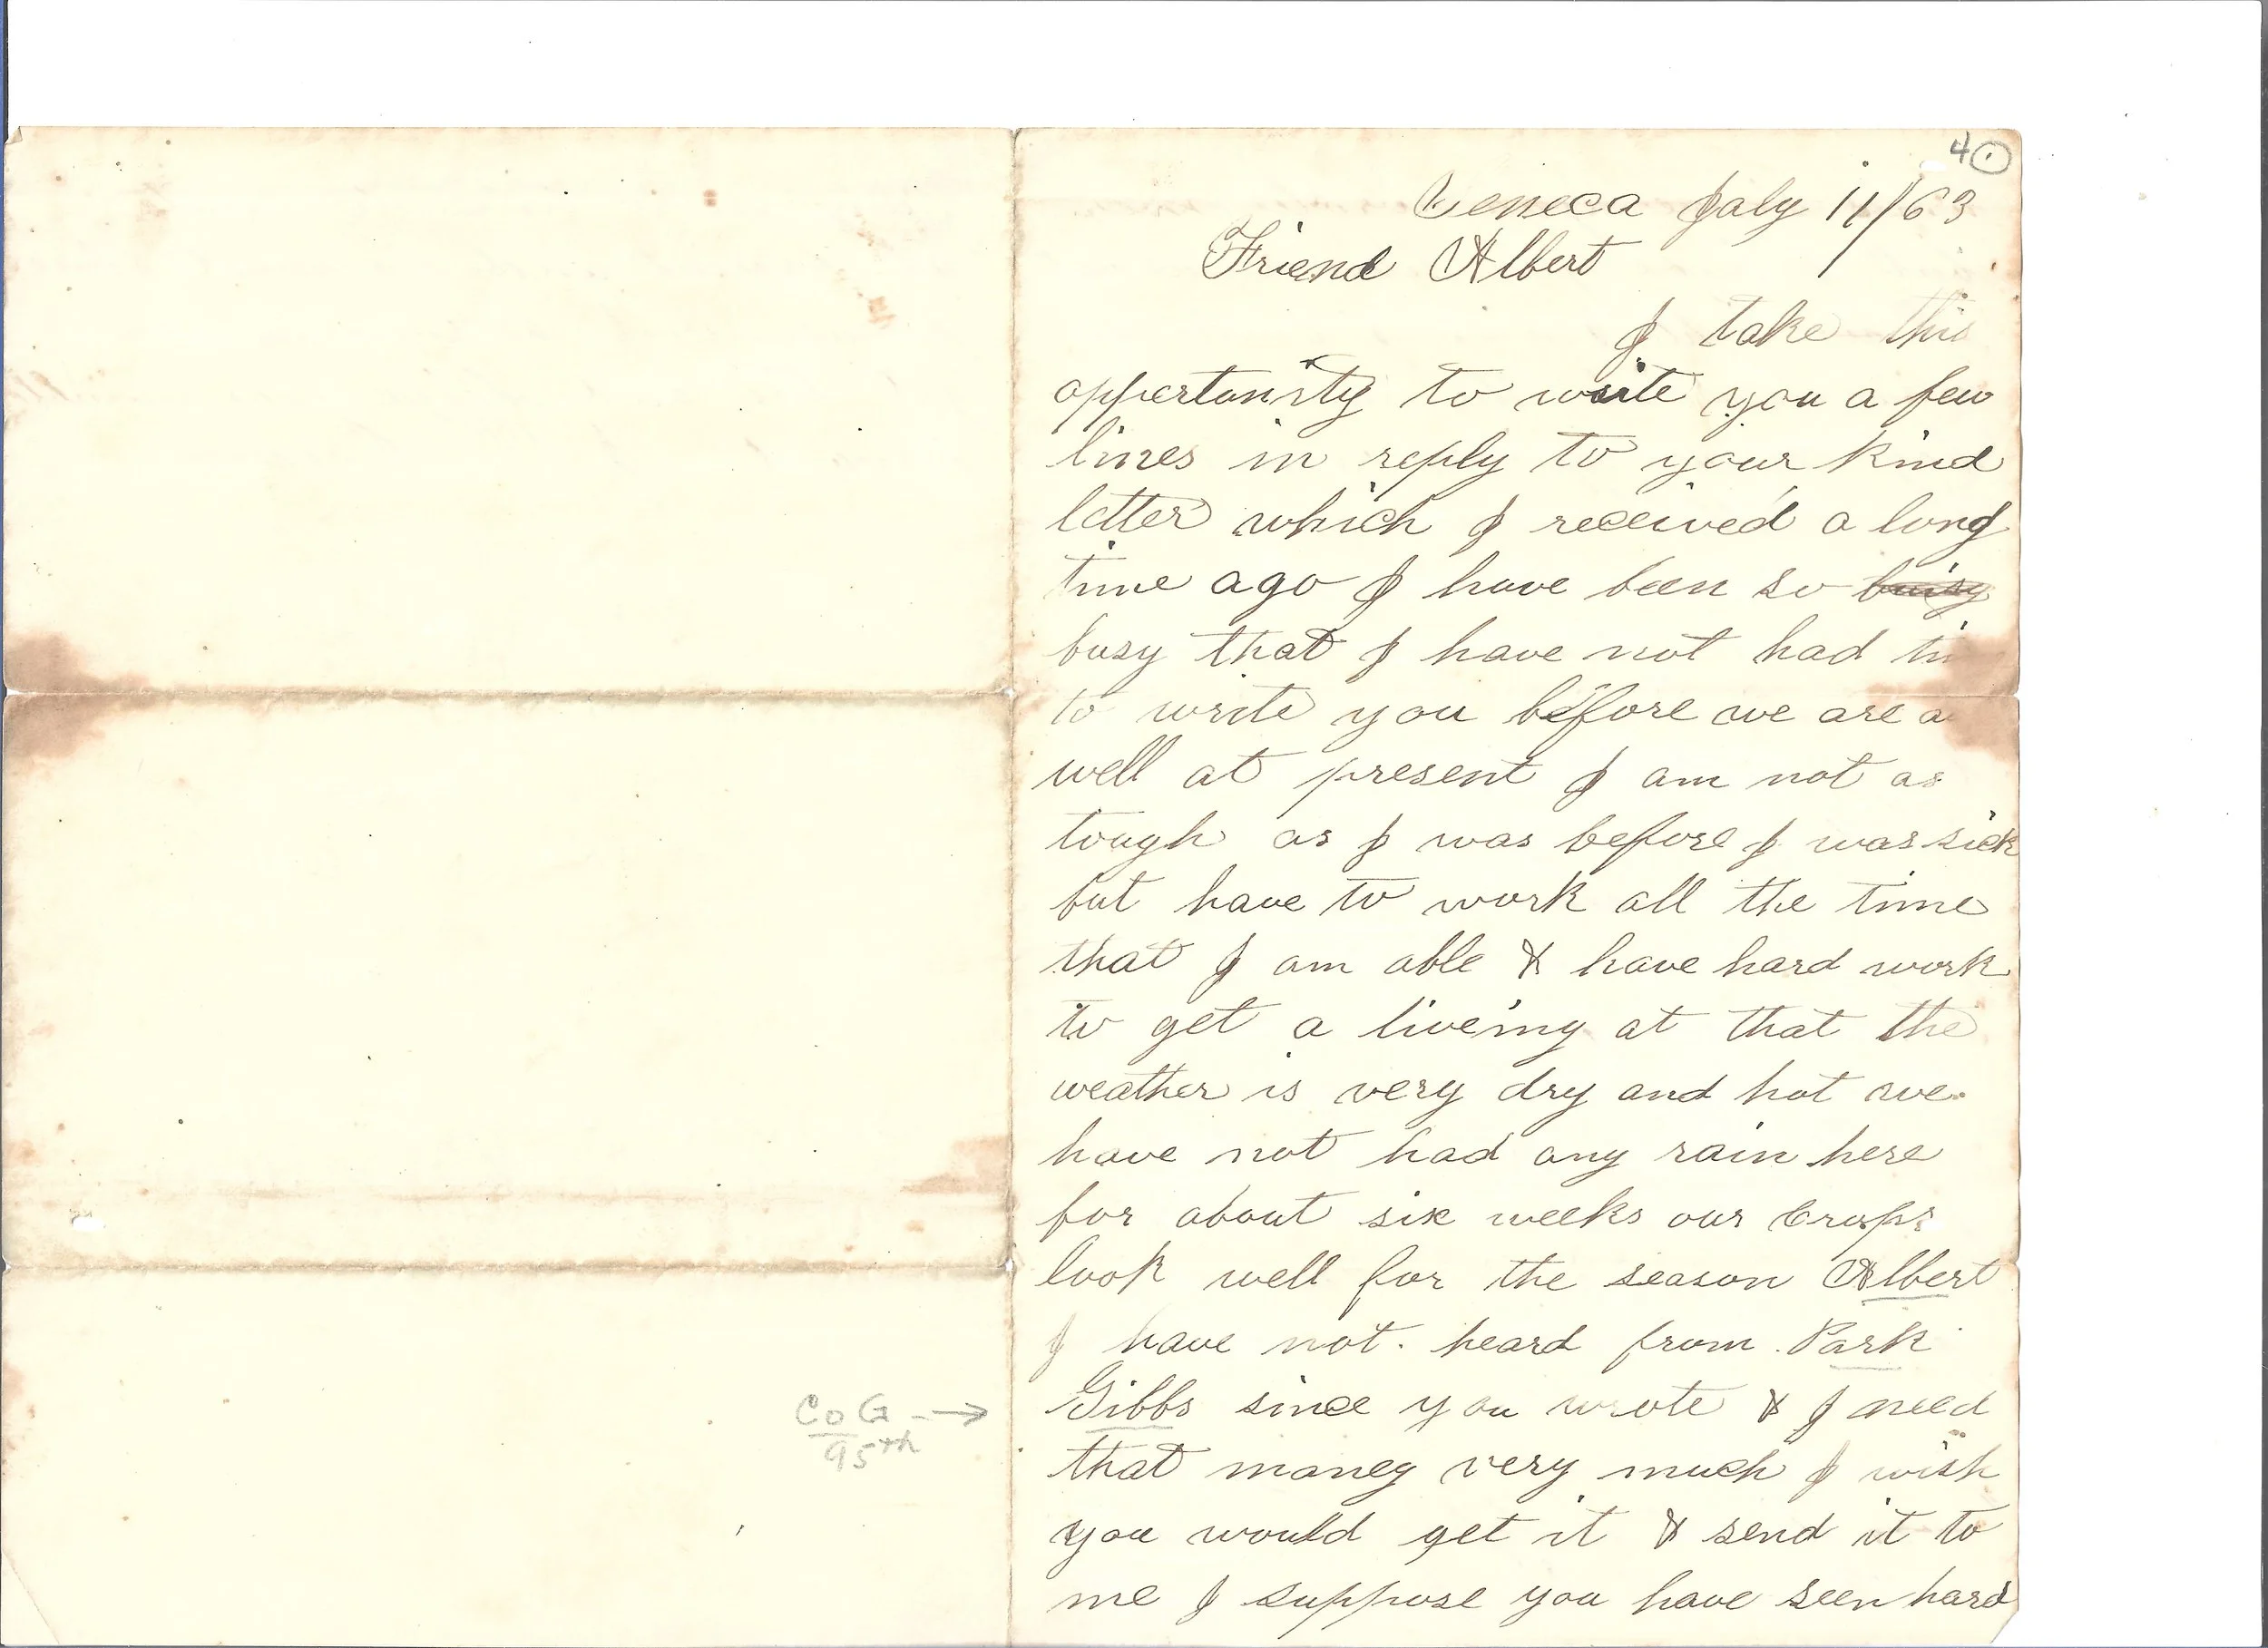 4 ①
Seneca July 11/63
Friend Albert
I take this
oppertunity to write you a few
lines in reply to your kind
letter which I received a long
time ago I have been so buisy
busy that I have not had
to write you before we are
well at present I am not as
tough as I was before I was sick
but have to work all the time
that I am able & have hard work
to get a liveing at that the
weather is very dry and hot we
have not had any rain here
for about six weeks our Crops
look well for the season Albert
I have not heard from Park
Gibbs since you wrote & I need
that money very much I wish
you would get it & send it to
me I suppose you have seen hard
Co G →
95th